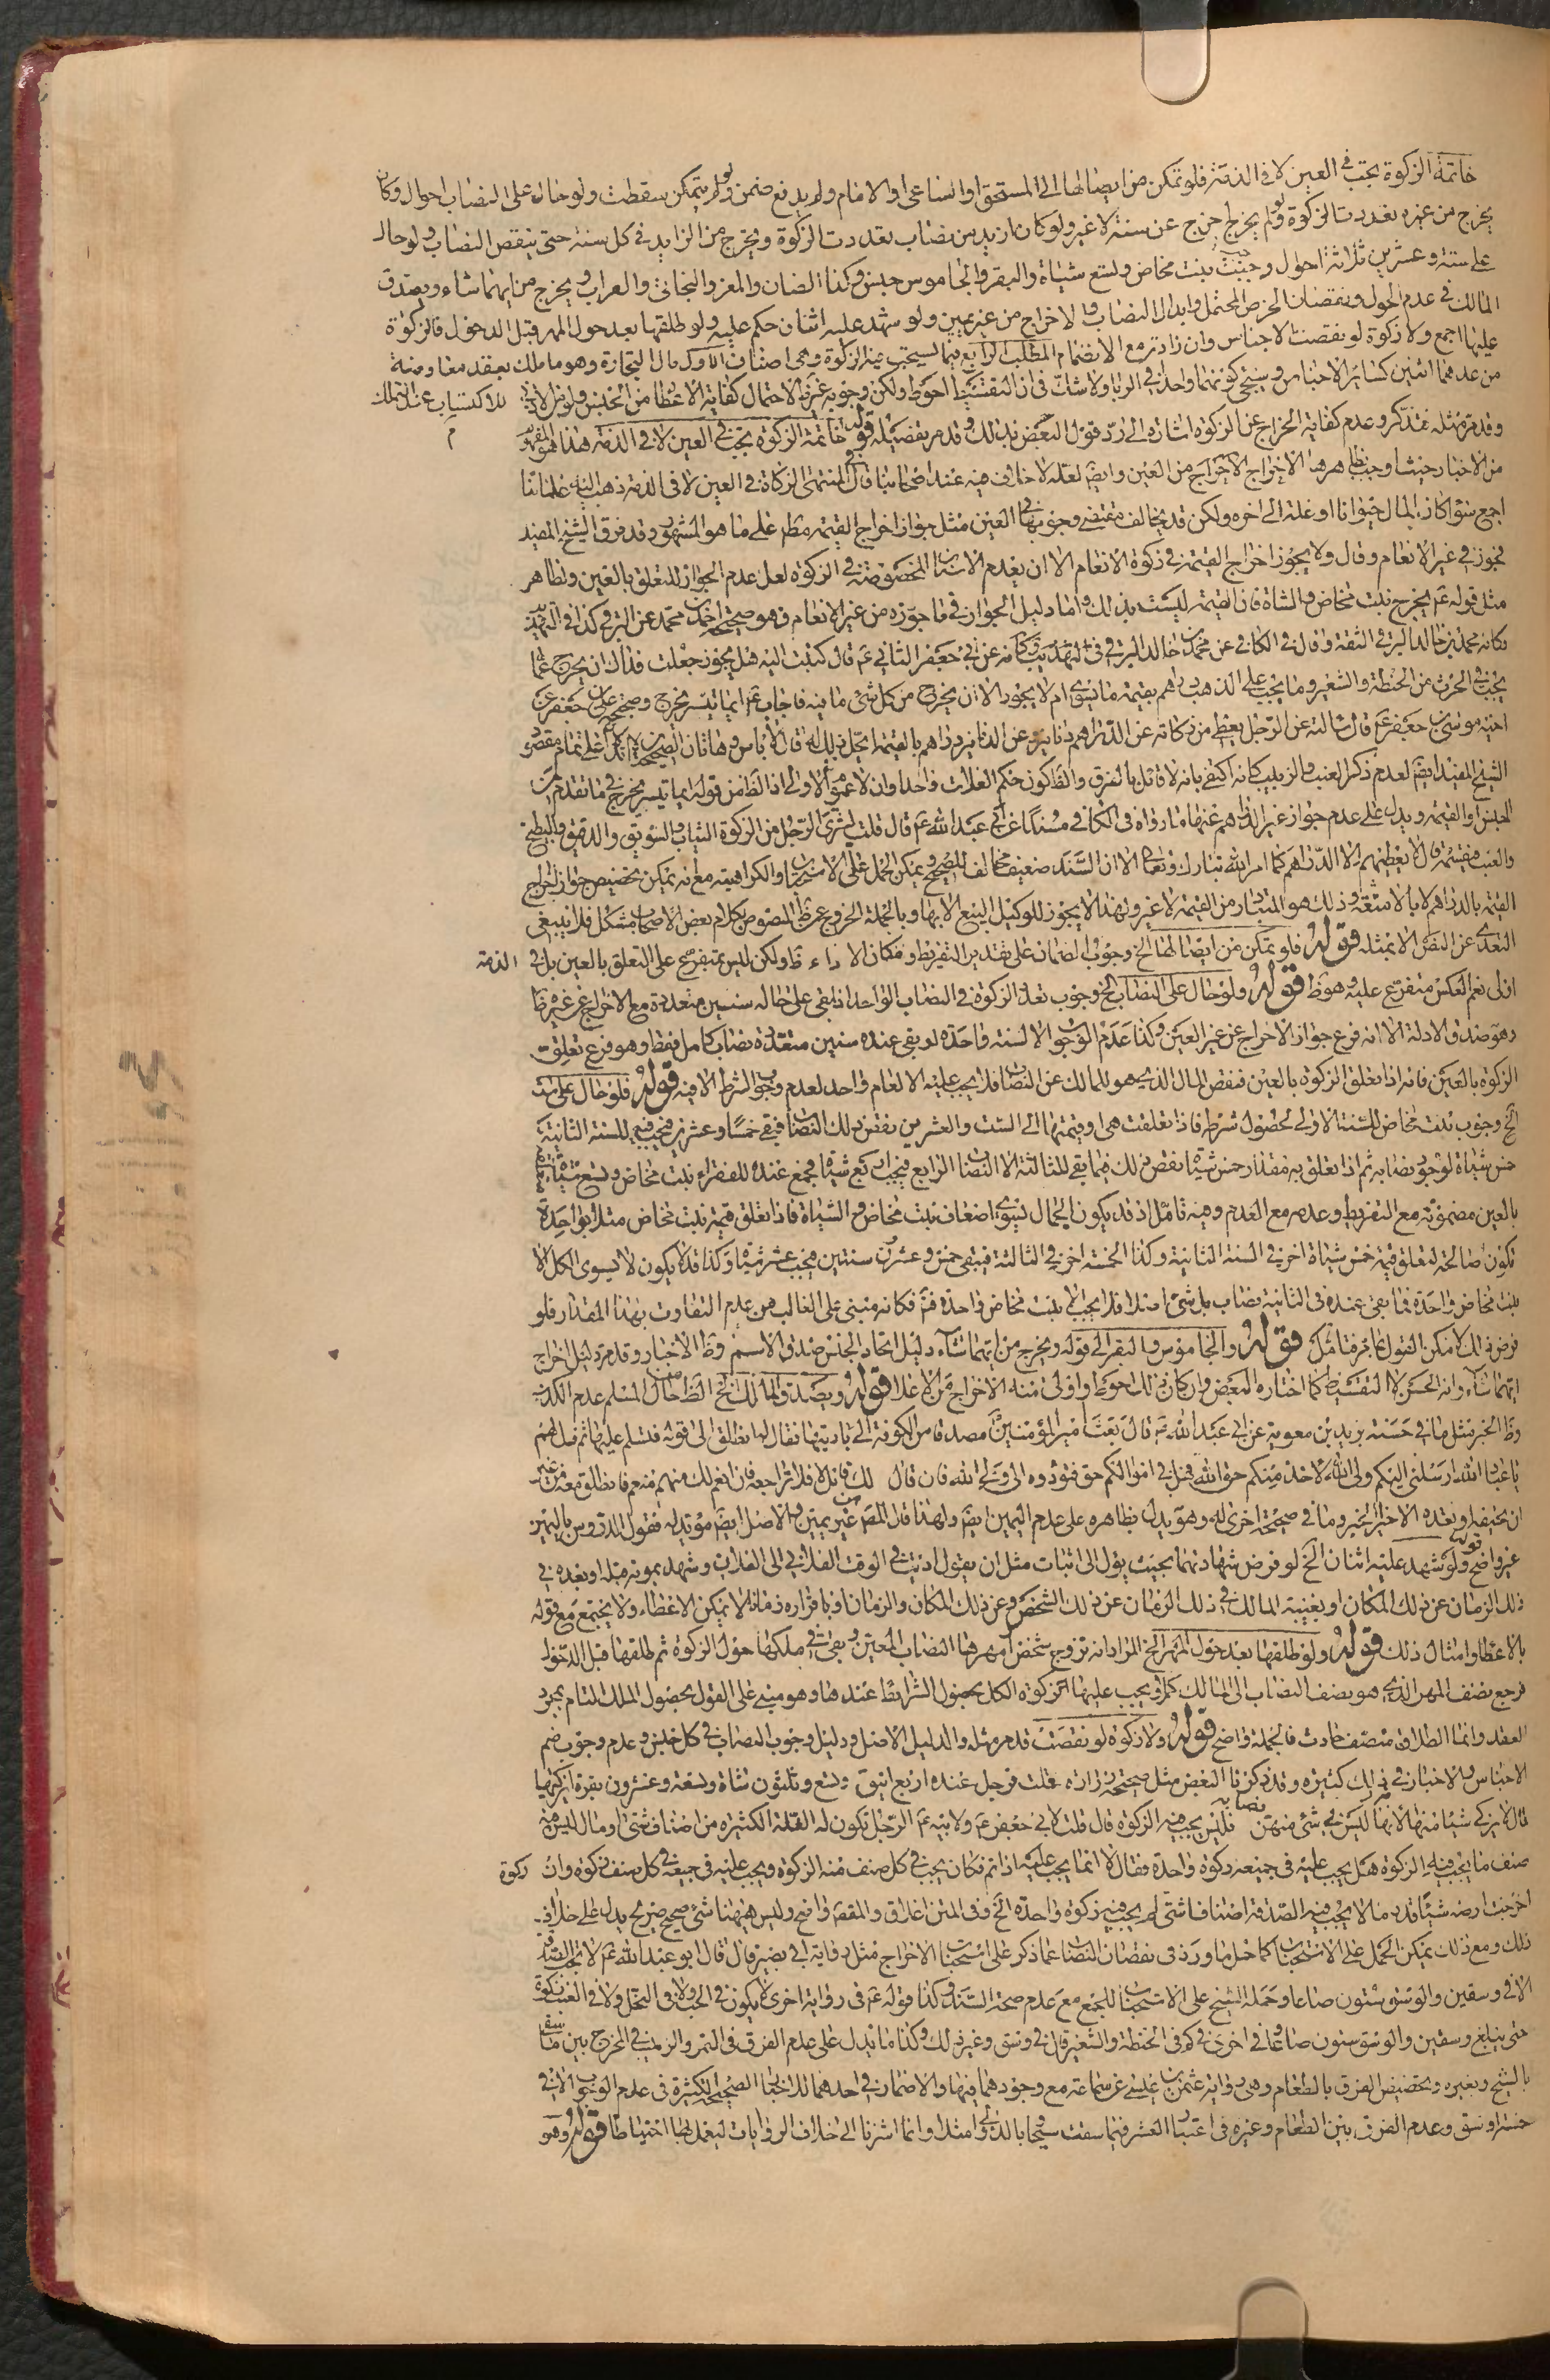 خاتمة الزكوة يجب في العين لا في الذمة فلو تمكن من ايصالها الى المستحق او الساعى او الامام ولم يدفع ضمن ولو لم يتمكن سقطت ولو حال على النصاب احوال وكان
يخرج من غيره تعددت الزكوة ولو لم يخرج اخرج عن سنة لا غير ولو كان ازيد من نصاب تعددت الزكوة ويخرج من الزايد في كل سنة حتى ينقص النصاب ولو حال
على ستة وعشرين ثلاثة احوال وجبت بنت مخاض وتسع شياة والبقر والجاموس جنس وكذا الضان والمعز والبخاتى والعراب ويخرج من ايهما شاء ويصدق
المالك في عدم الحول ونقصان الخرص المحتمل وابدال النصاب والاخراج من غير يمين ولو شهد عليه اثنان حكم عليه ولو طلقها بعد حول المهر قبل الدخول فالزكوة
عليها اجمع ولا زكوة لو نقصت الاجناس وان زادت مع الانضمام المطلب الرابع فيما يستحب فيه الزكوة وهى اصناف الاول مال التجارة وهو ما ملك بعقد معاوضة
للاكتساب عند التملك
من عدهما اثنين كساير الاجناس وسيجئ كونهما واحدا في الربا ولا شك في ان التقسيط احوط ولكن وجوبه غير ظ لاحتمال كفاية الاعطا من الجنس ولو من الادنى
وقد مر مثله فتذكر وعدم كفاية الخراج عن الزكوة اشارة الى رد قول البعض بذلك وقد مر تفصيله قوله خاتمة الزكوة تجب في العين لا في الذمة هذا هو المفهوم
من الاخبار حيث اوجب ظاهرها الاخراج من العين وايضا لعله لا خلاف فيه عند اصحابنا قال في المنتهى الزكاة في العين لا في الذمة ذهب اليه علمائنا
اجمع سواء كان المال حيوانا او غلة الى اخره ولكن قد يخالف مقتضى وجوبها في العين مثل جواز اخراج القيمة مطم على ما هو المشهور وقد فرق الشيخ المفيد
فجوز في غير الانعام وقال ولا يجوز اخراج القيمة في زكوة الانعام الا ان يعدم الاسنان المخصوصة في الزكوة لعل عدم الجواز للتعلق بالعين ولظاهر
مثل قوله عم يخرج بنت مخاض والشاة فان القيمة ليست بذلك واما دليل الجواز في ما جوزه من غير الانعام فهو صحيحة احمد بن محمد عن البرقى كذا في التهذيب
فكانه محمد بن خالد البرقى الثقة وقال في الكافى عن محمد بن خالد البرقى في التهذيب وكانه عن ابى جعفر الثانى عم قال كتبت اليه هل يجوز جعلت فداك ان يخرج عما
يجب في الحرث من الحنطة والشعير وما يجب على الذهب دراهم بقيمة ما يسوى ام لا يجوز الا ان يخرج من كل شئ ما فيه فاجاب عم ايما تيسر يخرج وصحيح على بن جعفر عن
اخيه موسى بن جعفر عم قال سالته عن الرجل يعطى من زكاته عن الدراهم دنانير وعن الدنانير دراهم بالقيمة ايحل ذلك له قال لا باس وهاتان الصحيحتان لم تدلا على تمام مقصود
الشيخ المفيد ايضا لعدم ذكر العنب والزبيب كانه اكتفى بانه لا قائل بالفرق والظ كون حكم الغلات واحدا وان لا عموم في الاولى اذ الظ من قوله ايما تيسر يخرج في ما تقدم من
الجنس او القيمة ويدل على عدم جواز غير الدراهم عنها ما رواه في الكافى مسندا عن ابى عبد الله عم قال قلت يشترى الرجل من الزكوة الثياب والسويق والدقيق والبطيخ
والعنب فيقسمه قال لا يعطيهم الا الدراهم كما امر الله تبارك وتعالى الا ان السند ضعيف مخالف للصحيح ويمكن الحمل على الاستحباب او الكراهية مع انه يمكن تخصيص جواز اخراج
القيمة بالدراهم لا بالامتعة وذلك هو المتبادر من القيمة لا غير ولهذا لا يجوز للوكيل البيع الا بها وبالجملة الخروج عن ظ النصوص بكلام بعض الاصحاب مشكل فلا ينبغى
التعدى عن النص الا بمثله قوله فلو تمكن من ايصالها الخ وجوب الضمان على تقدير التفريط ومكان الاداء ظ ولكن ليس بمتفرع على التعلق بالعين بل في الذمة
اولى نعم العكس متفرع عليه وهو ظ قوله ولو حال على النصاب الخ وجوب تعدد الزكوة في النصاب الواحد اذا بقى على حاله سنين متعددة مع الاخراج عن غيره ظ
وهو صدق الادلة الا انه فرع جواز الاخراج عن غير العين وكذا عدم الوجوب الا لسنة واحدة لو بقى عنده سنين متعددة نصاب كامل فقط وهو فرع تعلق
الزكوة بالعين فانه اذا تعلق الزكوة بالعين فنقص المال الذى هو للمالك عن النصاب فلا يجب عليه الا لعام واحد لعدم وجوب الشرط الا فيه قوله فلو حال على ست
الخ وجوب بنت مخاض للسنة الاولى لحصول شرطه فاذا تعلقت هى او قيمتها الى الست والعشرين نقص ذلك النصاب فبقى خمسا وعشرين فيجب فيها للسنة الثانية
خمس شياة لوجود نصابه ثم اذا تعلق به مقدار خمس شياة نقص ذلك فما بقى للثالثة الا النصاب الرابع فيجب اربع شياة فيجمع عنده للفقراء بنت مخاض وتسع شياة
بالعين مضمونة مع التفريط وعدمه مع العدم وفيه تامل اذ قد يكون الجمال يسوى اضعاف بنت مخاض والشياة فاذا تعلق قيمة بنت مخاض مثلا بواحدة
تكون صالحة لتعلق قيمة خمس شياة اخرى في السنة الثانية وكذا الخمسة اخرى في الثالثة فيبقى خمس وعشرون سنتين فيجب عشر شياة وكذا قد لا يكون لا يسوى الكل الا
بنت مخاض واحدة فما بقى عنده في الثانية نصاب بل شئ اصلا فلا يجب الا بنت مخاض واحدة فقط فكانه مبنى على الغالب من عدم التفاوت بهذا المقدار فلو
فرض ذلك لامكن القول بما مر فتامل قوله والجاموس والبقر الى قوله ويخرج من ايهما شاء دليل اتحاد الجنس صدق الاسم وظ الاخبار وقد مر دليل اخراج
ايهما شاء وانه الحسن لا التقسيط كما اختاره البعض وان كان ذلك احوط واولى منه الاخراج من الاعلا قوله ويصدق المالك الخ الظ حال المسلم عدم الكذب
وظ الخبر مثل ما في حسنة بريد بن معوية عن ابى عبد الله عم قال بعث امير المؤمنين مصدقا من الكوفة الى باديتها فقال له انطلق الى قوله فتسلم عليهم ثم قل لهم
يا عباد الله ارسلنى اليكم ولى الله لاخذ منكم حق الله فهل في اموالكم حق فتؤدوه الى ولى الله فان قال لك قائل لا فلا تراجعه فان انعم لك منهم منعم فانطلق معه من غير
ان تخيفه او تعده الا خيرا الخبر وما في صحيحة اخرى له وهو يدل بظاهره على عدم اليمين ايضا ولهذا قال المصنف من غير يمين والاصل ايضا مؤيد له فقول الدروس باليمين
غير واضح قوله ولو شهد عليه اثنان الخ لو فرض شهادتهما بحيث يؤل الى اثبات مثل ان يقول اديت في الوقت الفلانى الى الفلان وشهد بموته قبله او بعده في
ذلك الزمان عن ذلك المكان او بغيبة المالك في ذلك الزمان عن ذلك الشخص وعن ذلك المكان والزمان او باقراره زمانا لا يمكن الاعطاء ولا يجتمع مع قوله
بالاعطا وامثال ذلك قوله ولو طلقها بعد حول المهر الخ المراد انه تزوج شخص امهرها النصاب المعين وبقى في ملكها حول الزكوة ثم طلقها قبل الدخول
فرجع نصف المهر الذى هو نصف النصاب الى المالك كملا ويجب عليها الزكوة الكل لحصول الشرايط عندها وهو مبنى على القول بحصول الملك التام بمجرد
العقد وانما الطلاق منصف حادث فالجملة واضح قوله ولا زكوة لو نقصت قد مر مثله والدليل الاصل ودليل وجوب النصاب في كل جنس وعدم وجوب ضم
الاجناس والاخبار في ذلك كثيرة وقد ذكرنا البعض مثل صحيحة زرارة قلت فرجل عنده اربع اينق وتسع وثلثون شاة وتسعة وعشرون بقرة ايزكيها
قال لا يزكى شيئا منها لانها ليس في شئ منهن نصابه فليس يجب فيه الزكوة قال قلت لابى جعفر عم ولابنه عم الرجل تكون له الغلة الكثيرة من اصناف شتى او مال ليس فيه
صنف ما يجب فيه الزكوة هل يجب عليه في جميعه زكوة واحدة فقال لا انما يجب عليه اذا تم فكان يجب في كل صنف منه الزكوة ويجب عليه في جميعه في كل صنف زكوة وان
اخرجت ارضه شيئا قدر ما لا يجب فيه الصدقة اصنافا شتى لم يجب فيه زكوة واحدة الخ وفى المتن اغلاق والمقصود واضح وليس ههنا شئ صحيح صريح يدل على خلاف
ذلك ومع ذلك يمكن الحمل على الاستحباب كما حمل ما ورد في نقصان النصاب عما ذكر على استحباب الاخراج مثل رواية ابى بصير قال قال ابو عبد الله عم لا تجب الصدقة
الا في وسقين والوسق ستون صاعا وحمله الشيخ على الاستحباب للجمع مع عدم صحة السند وكذا قوله عم في رواية اخرى لا يكون في الحب ولا في النخل ولا في العنب زكوة
حتى يبلغ وسقين والوسق ستون صاعا وفى اخرى في كم في الحنطة والشعير قال في وسق وغير ذلك وكذا ما يدل على عدم الفرق في التمر والزبيب في المخرج بين ما سقى
بالسيح وبغيره وتخصيص الفرق بالطعام وهى رواية عثمن بن عيسى عن سماعة مع وجودهما فيها والاضمار في احدهما للاخبار الصحيحة الكثيرة في عدم الوجوب الا في
خمسة اوسق وعدم الفرق بين الطعام وغيره في اعتبار العشر فيما سقت سيحا بالدوالى وامثلها وانما اشرنا الى خلاف الروايات ليعمل بها احتياطا قوله وهو